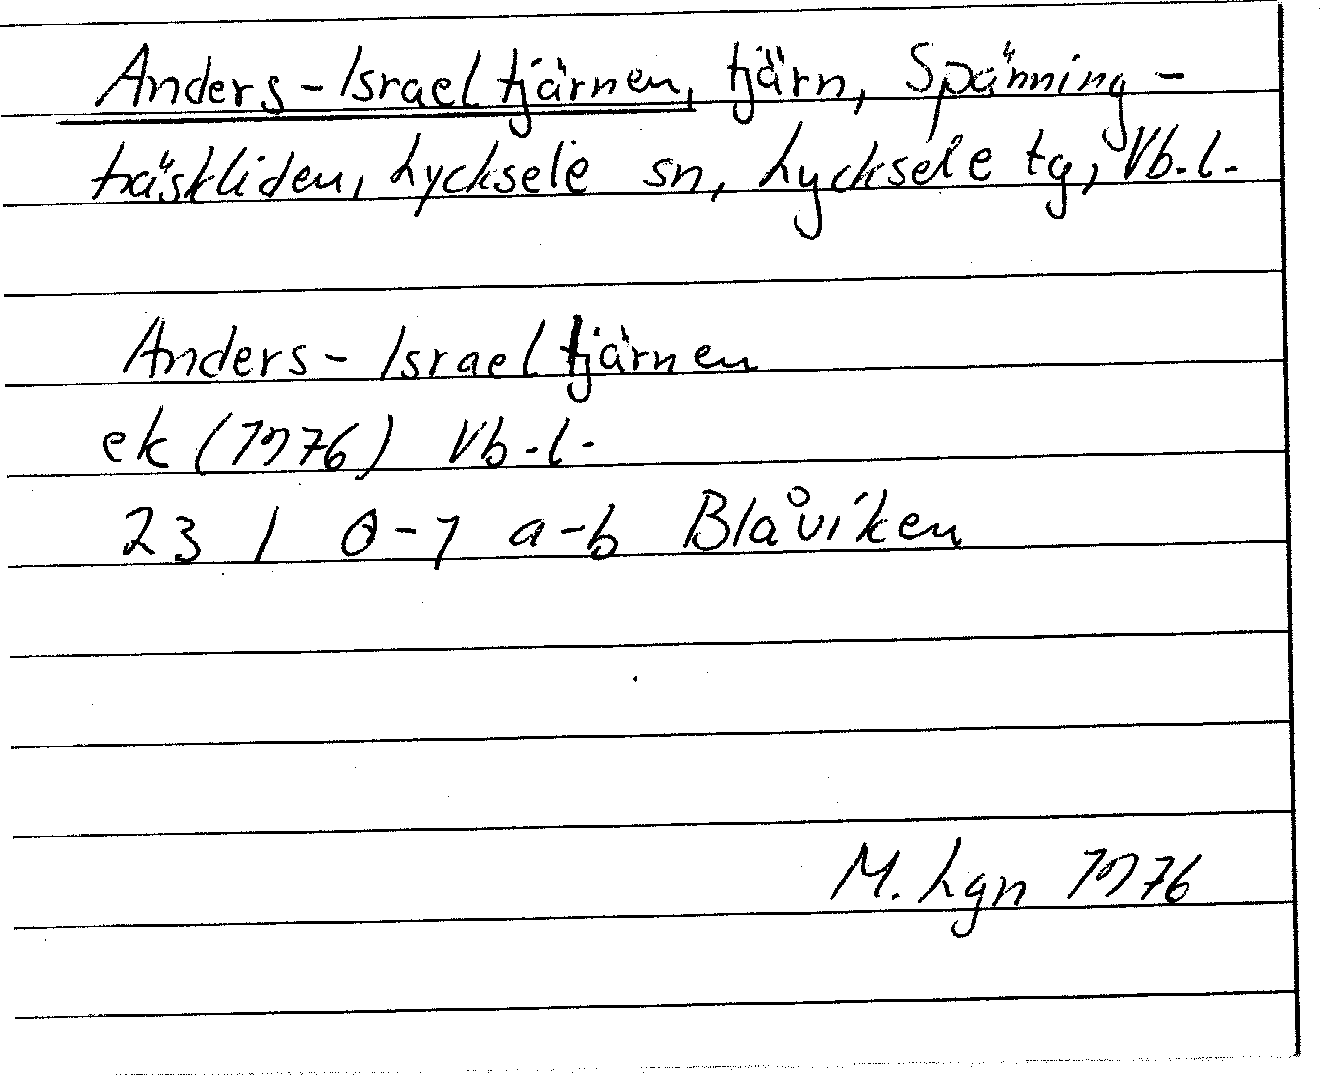 Anders-Israeltjärnen, tjärn, Spänning-
träskliden, Lycksele sn, Lycksele tg, Vb.l.
Anders-Israeltjärnen
ek (1976) Vb.l.
23 I 0-1 a-b Blåviken
M. Lgn 1976